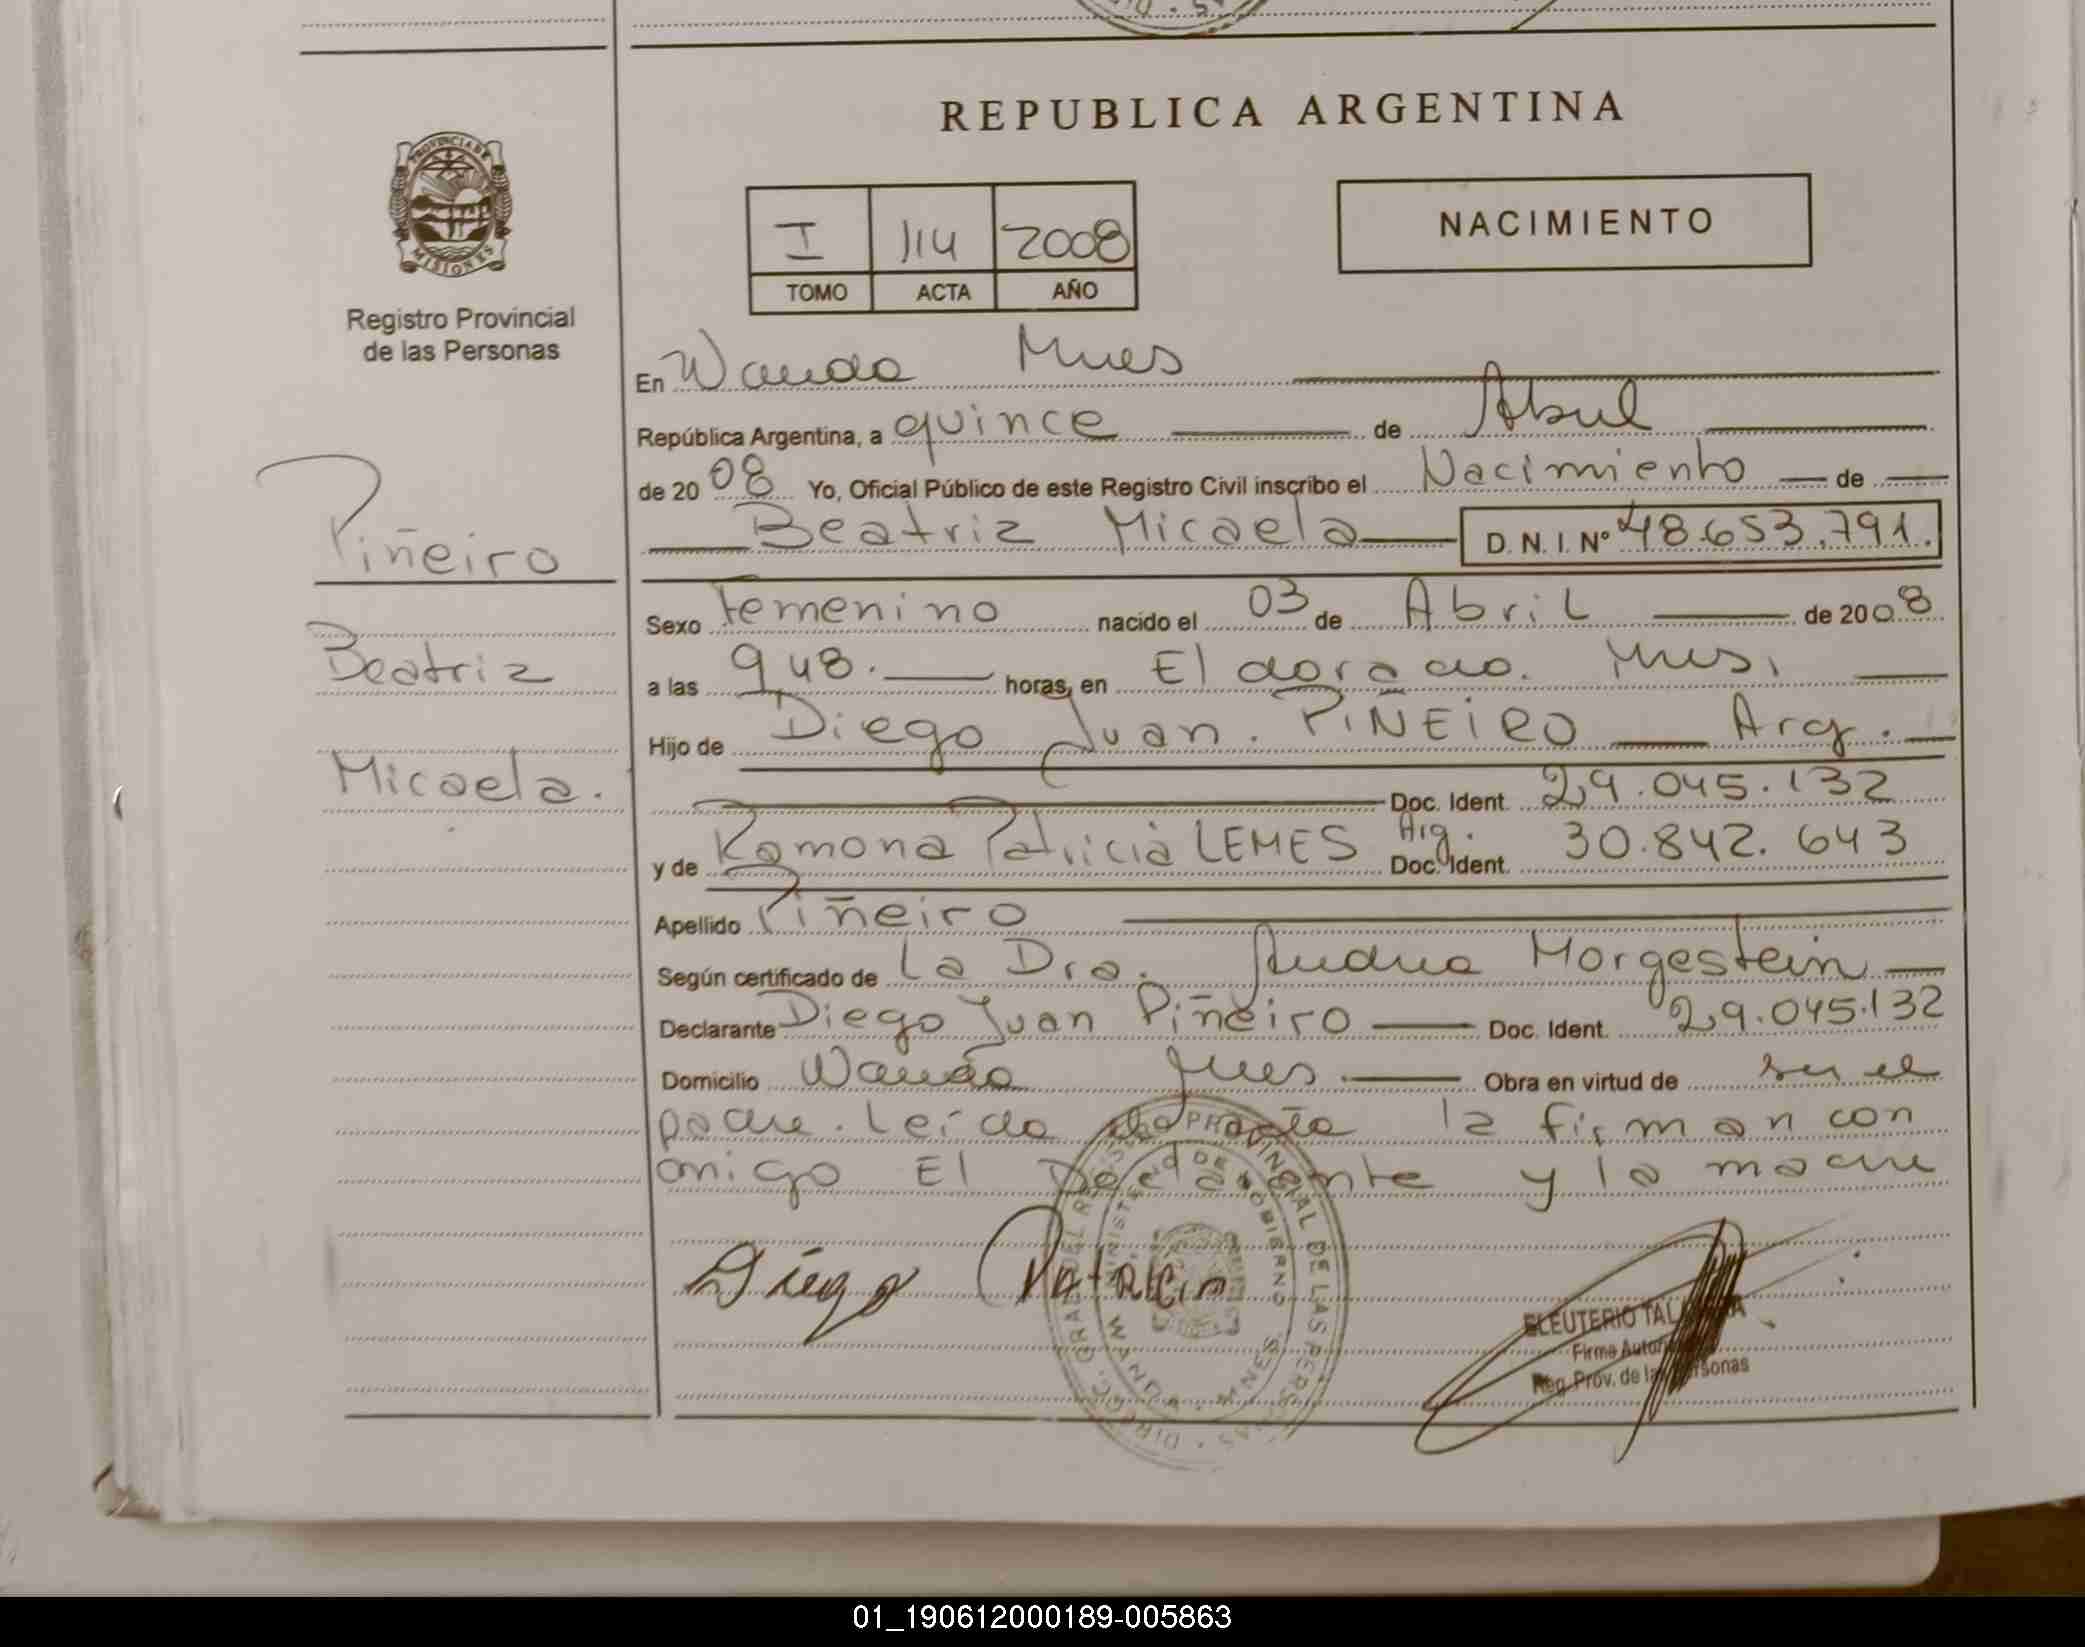 REPUBLICA ARGENTINA
PROVINCIA DE
MISIONES
Registro Provincial
de las Personas
I 114 2008
TOMO ACTA AÑO
NACIMIENTO
En Wanda Mnes
República Argentina, a quince de Abril
de 2008 Yo, Oficial Público de este Registro Civil inscribo el Nacimiento de
Beatriz Micaela D. N. I. Nº 48.653.791.
Piñeiro
Beatriz
Micaela.
Sexo Femenino nacido el 03 de Abril de 2008
a las 9 48. horas, en Eldorado. Mnes.
Hijo de Diego Juan. PIÑEIRO Arg.
Doc. Ident. 29.045.132
y de Ramona Patricia LEMES Arg. Doc. Ident. 30.842.643
Apellido Piñeiro
Según certificado de La Dra. Andrea Morgestein
Declarante Diego Juan Piñeiro Doc. Ident. 29.045.132
Domicilio Wanda Mnes. Obra en virtud de ser el
padre. Leída el acta la firman con
migo El Declarante y la madre
Diego Patricia
DIREC. GRAL. DEL REGISTRO PROVINCIAL DE LAS PERSONAS
MINISTERIO DE GOBIERNO
WANDA MNES.
ELEUTERIO
Reg. Prov. de las Personas
01_190612000189-005863